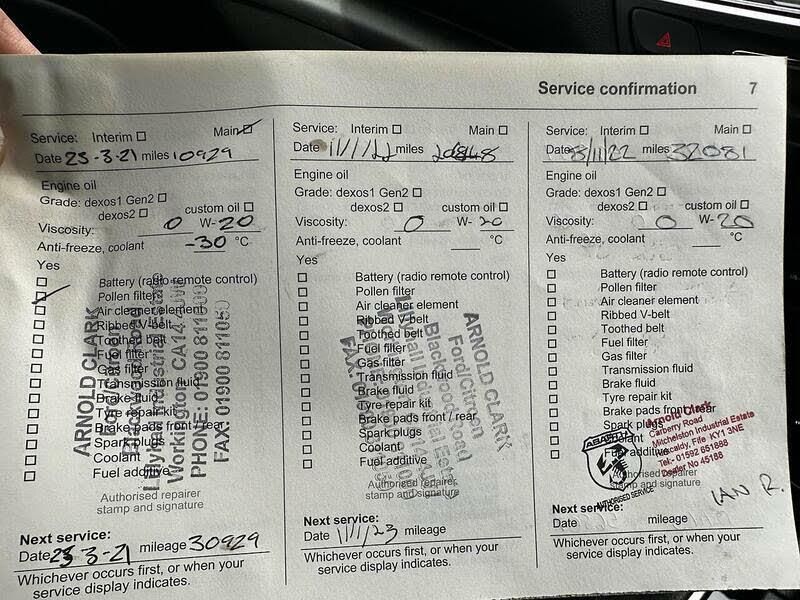 Service confirmation 7
Service: Interim Main
Date 25-3-21 miles 10929
Engine oil
Grade: dexos1 Gen2
dexos2 custom oil
Viscosity: 0 W-20
Anti-freeze, coolant -30 °C
Yes
Battery (radio remote control)
Pollen filter
Air cleaner element
Ribbed V-belt
Toothed belt
Fuel filter
Gas filter
Transmission fluid
Brake fluid
Tyre repair kit
Brake pads front / rear
Spark plugs
Coolant
Fuel additive
ARNOLD CLARK
Lillyhall Industrial Estate
Workington, CA14
PHONE: 01900 811
FAX: 01900 811050
Authorised repairer
stamp and signature
Next service:
Date 25 3-21 mileage 30929
Whichever occurs first, or when your
service display indicates.
Service: Interim Main
Date 11/1/22 miles
Engine oil
Grade: dexos1 Gen2
dexos2 custom oil
Viscosity: 0 W-20
Anti-freeze, coolant °C
Yes
Battery (radio remote control)
Pollen filter
Air cleaner element
Ribbed V-belt
Toothed belt
Fuel filter
Gas filter
Transmission fluid
Brake fluid
Tyre repair kit
Brake pads front / rear
Spark plugs
Coolant
Fuel additive
ARNOLD CLARK
Ford/Citroen
Blackwood Road
Authorised repairer
stamp and signature
Next service:
Date 11/1/23 mileage
Whichever occurs first, or when your
service display indicates.
Service: Interim Main
Date 8/11/22 miles 32081
Engine oil
Grade: dexos1 Gen2
dexos2 custom oil
Viscosity: 0 W-20
Anti-freeze, coolant °C
Yes
Battery (radio remote control)
Pollen filter
Air cleaner element
Ribbed V-belt
Toothed belt
Fuel filter
Gas filter
Transmission fluid
Brake fluid
Tyre repair kit
Brake pads front / rear
Spark plugs
Coolant
Fuel additive
Arnold Clark
Carberry Road
Mitchelston Industrial Estate
Kirkcaldy, Fife KY1 3NE
Tel: 01592 651888
Dealer No 45188
ABARTH
AUTHORISED SERVICE
Authorised repairer
stamp and signature
IAN R.
Next service:
Date mileage
Whichever occurs first, or when your
service display indicates.